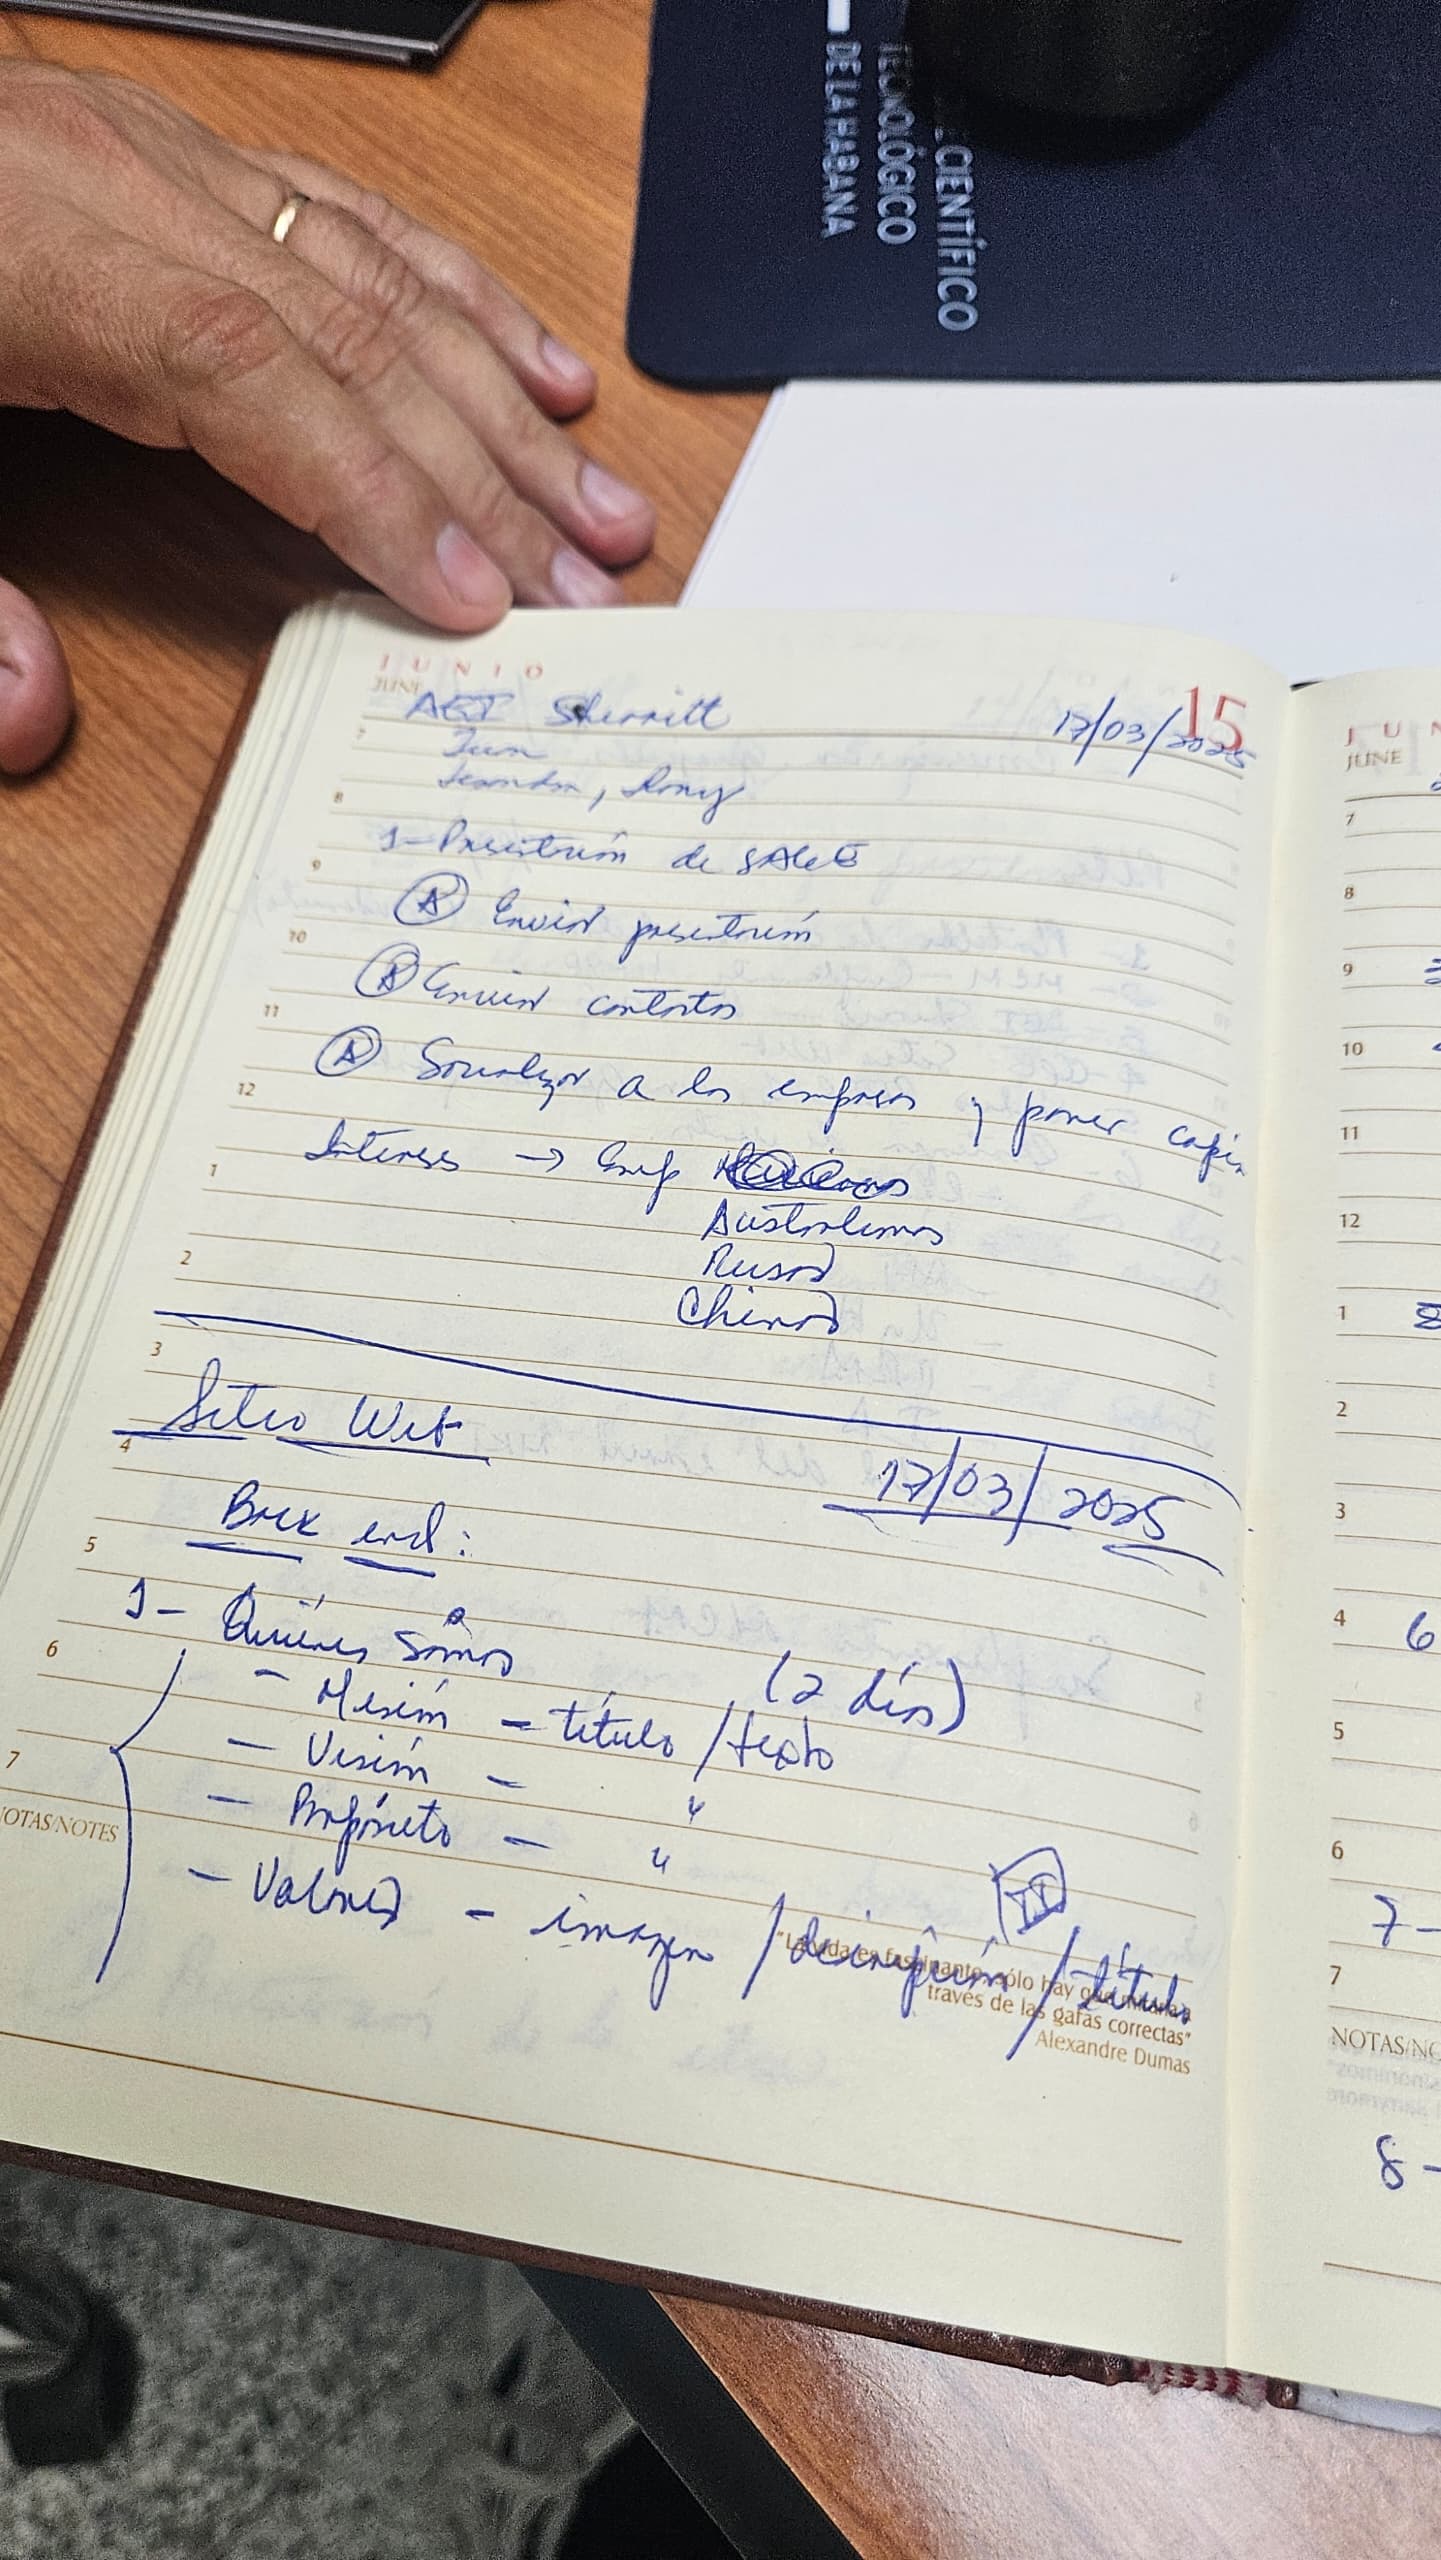 CIENTÍFICO
TECNOLÓGICO
DE LA HABANA
JUNIO
JUNE
15
AEI Sherritt 17/03/2025
7
8
1- Presentación de
9
A Enviar presentación
10
A Enviar contactos
11
A Socializar a las empresas y poner copia
12
Interés → Emp
1
Australianos
Rusos
2
Chinos
3
Sitio Web
4
17/03/2025
Back end:
5
1- Quiénes somos
6
(2 días)
- Misión - título / texto
- Visión - "
7
- Propósito - "
NOTAS/NOTES
- Valores - imagen / descripción / título
"La vida es fascinante, sólo hay que mirarla a
través de las gafas correctas"
Alexandre Dumas
JUN
JUNE
7
8
9
10
11
12
1
2
3
4
6
5
6
7-
7
NOTAS/NO
8-